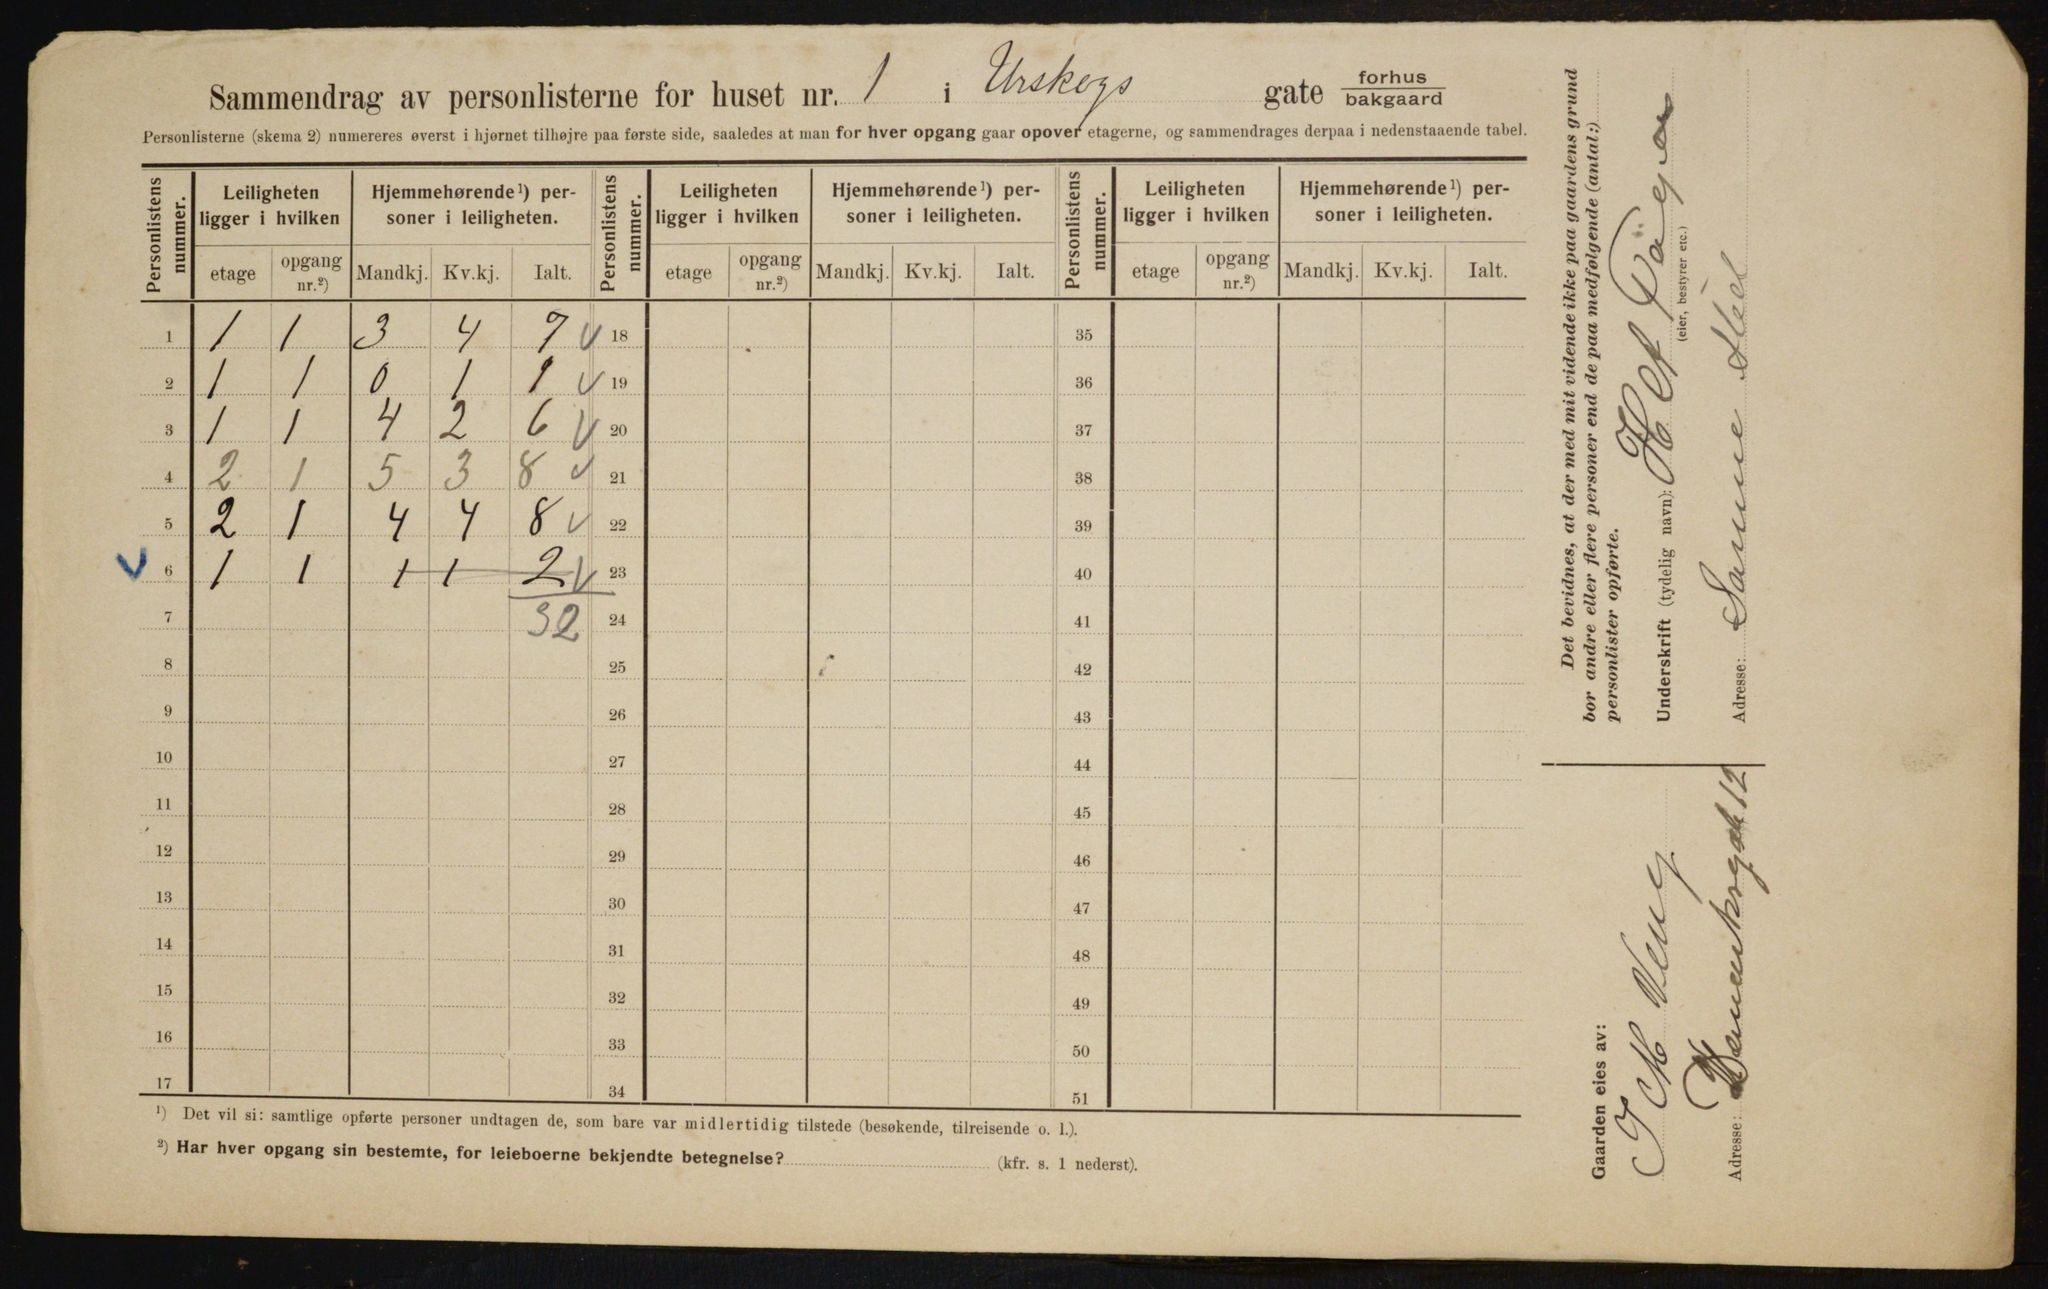 Sammendrag av personlisterne for huset nr. 1 i Urskogs gate forhus bakgaard
Personlisterne (skema 2) numereres øverst i hjørnet tilhøjre paa første side, saaledes at man for hver opgang gaar opover etagerne, og sammendrages derpaa i nedenstaaende tabel.
Personlistens nummer. Leiligheten ligger i hvilken Hjemmehørende ¹) personer i leiligheten. Personlistens nummer. Leiligheten ligger i hvilken Hjemmehørende ¹) personer i leiligheten. Personlistens nummer. Leiligheten ligger i hvilken Hjemmehørende ¹) personer i leiligheten.
etage opgang nr.²) Mandkj. Kv.kj. Ialt. etage opgang nr.²) Mandkj. Kv.kj. Ialt. etage opgang nr.²) Mandkj. Kv.kj. Ialt.
1 1 1 3 4 7 18 35
2 1 1 0 1 1 19 36
3 1 1 4 2 6 20 37
4 2 1 5 3 8 21 38
5 2 1 4 4 8 22 39
6 1 1 1 1 2 23 40
7 32 24 41
8 25 42
9 26 43
10 27 44
11 28 45
12 29 46
13 30 47
14 31 48
15 32 49
16 33 50
17 34 51
¹) Det vil si: samtlige opførte personer undtagen de, som bare var midlertidig tilstede (besøkende, tilreisende o. l.).
²) Har hver opgang sin bestemte, for leieboerne bekjendte betegnelse? (kfr. s. 1 nederst).
Det bevidnes, at der med mit vidende ikke paa gaardens grund
bor andre eller flere personer end de paa medfølgende (antal:)
personlister opførte.
Underskrift (tydelig navn):
(eier, bestyrer etc.)
Adresse: Samme Sted
Gaarden eies av:
Adresse: 12